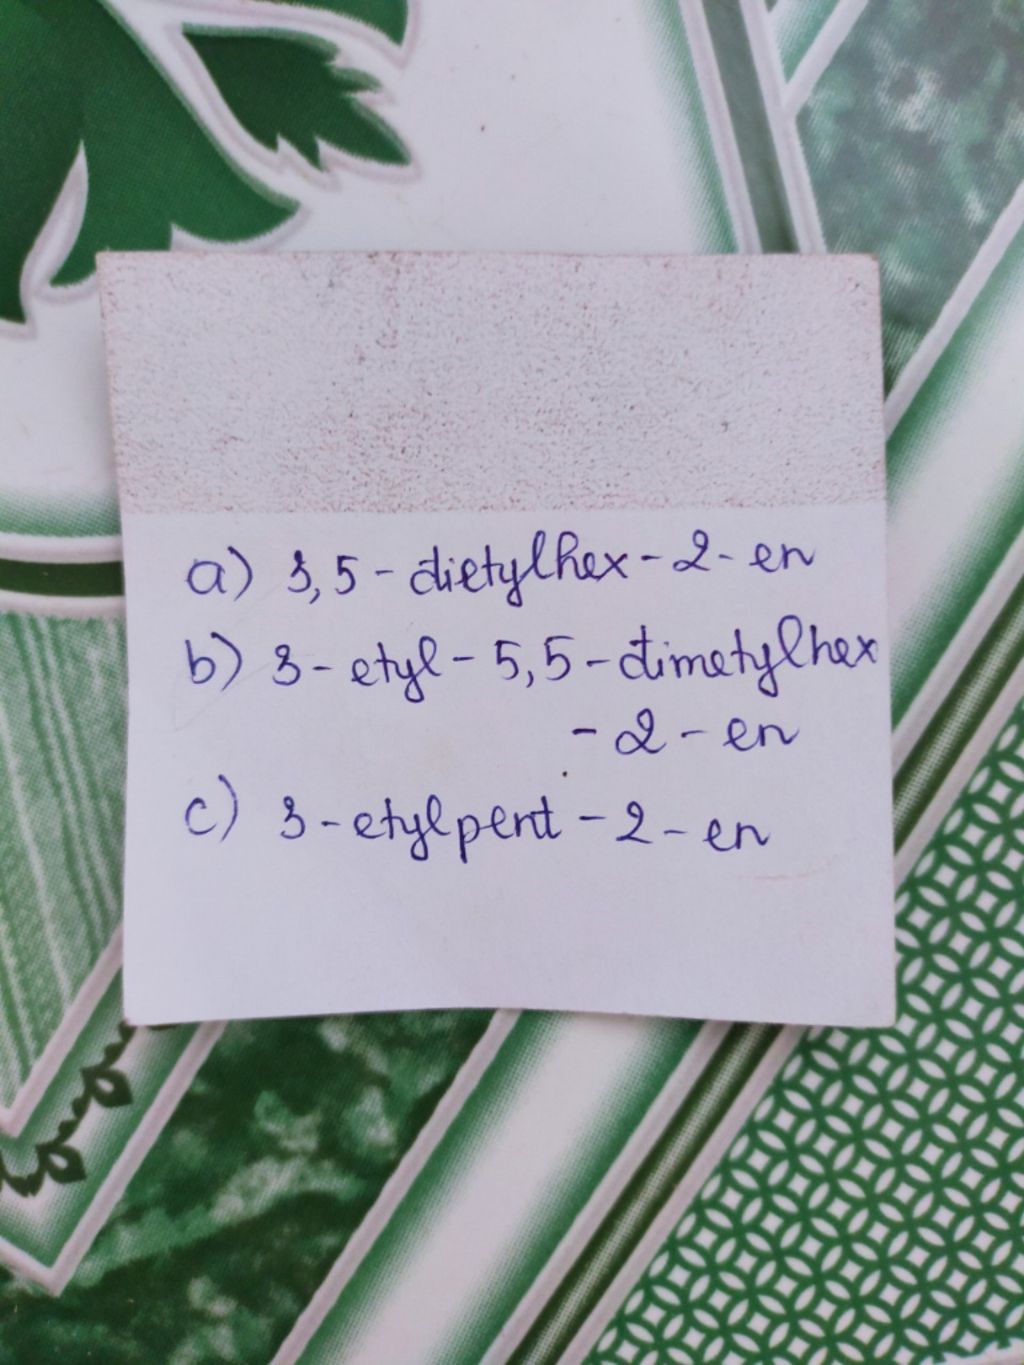 a) 3,5-dietylhex-2-en
b) 3-etyl-5,5-dimetylhex
-2-en
c) 3-etylpent-2-en